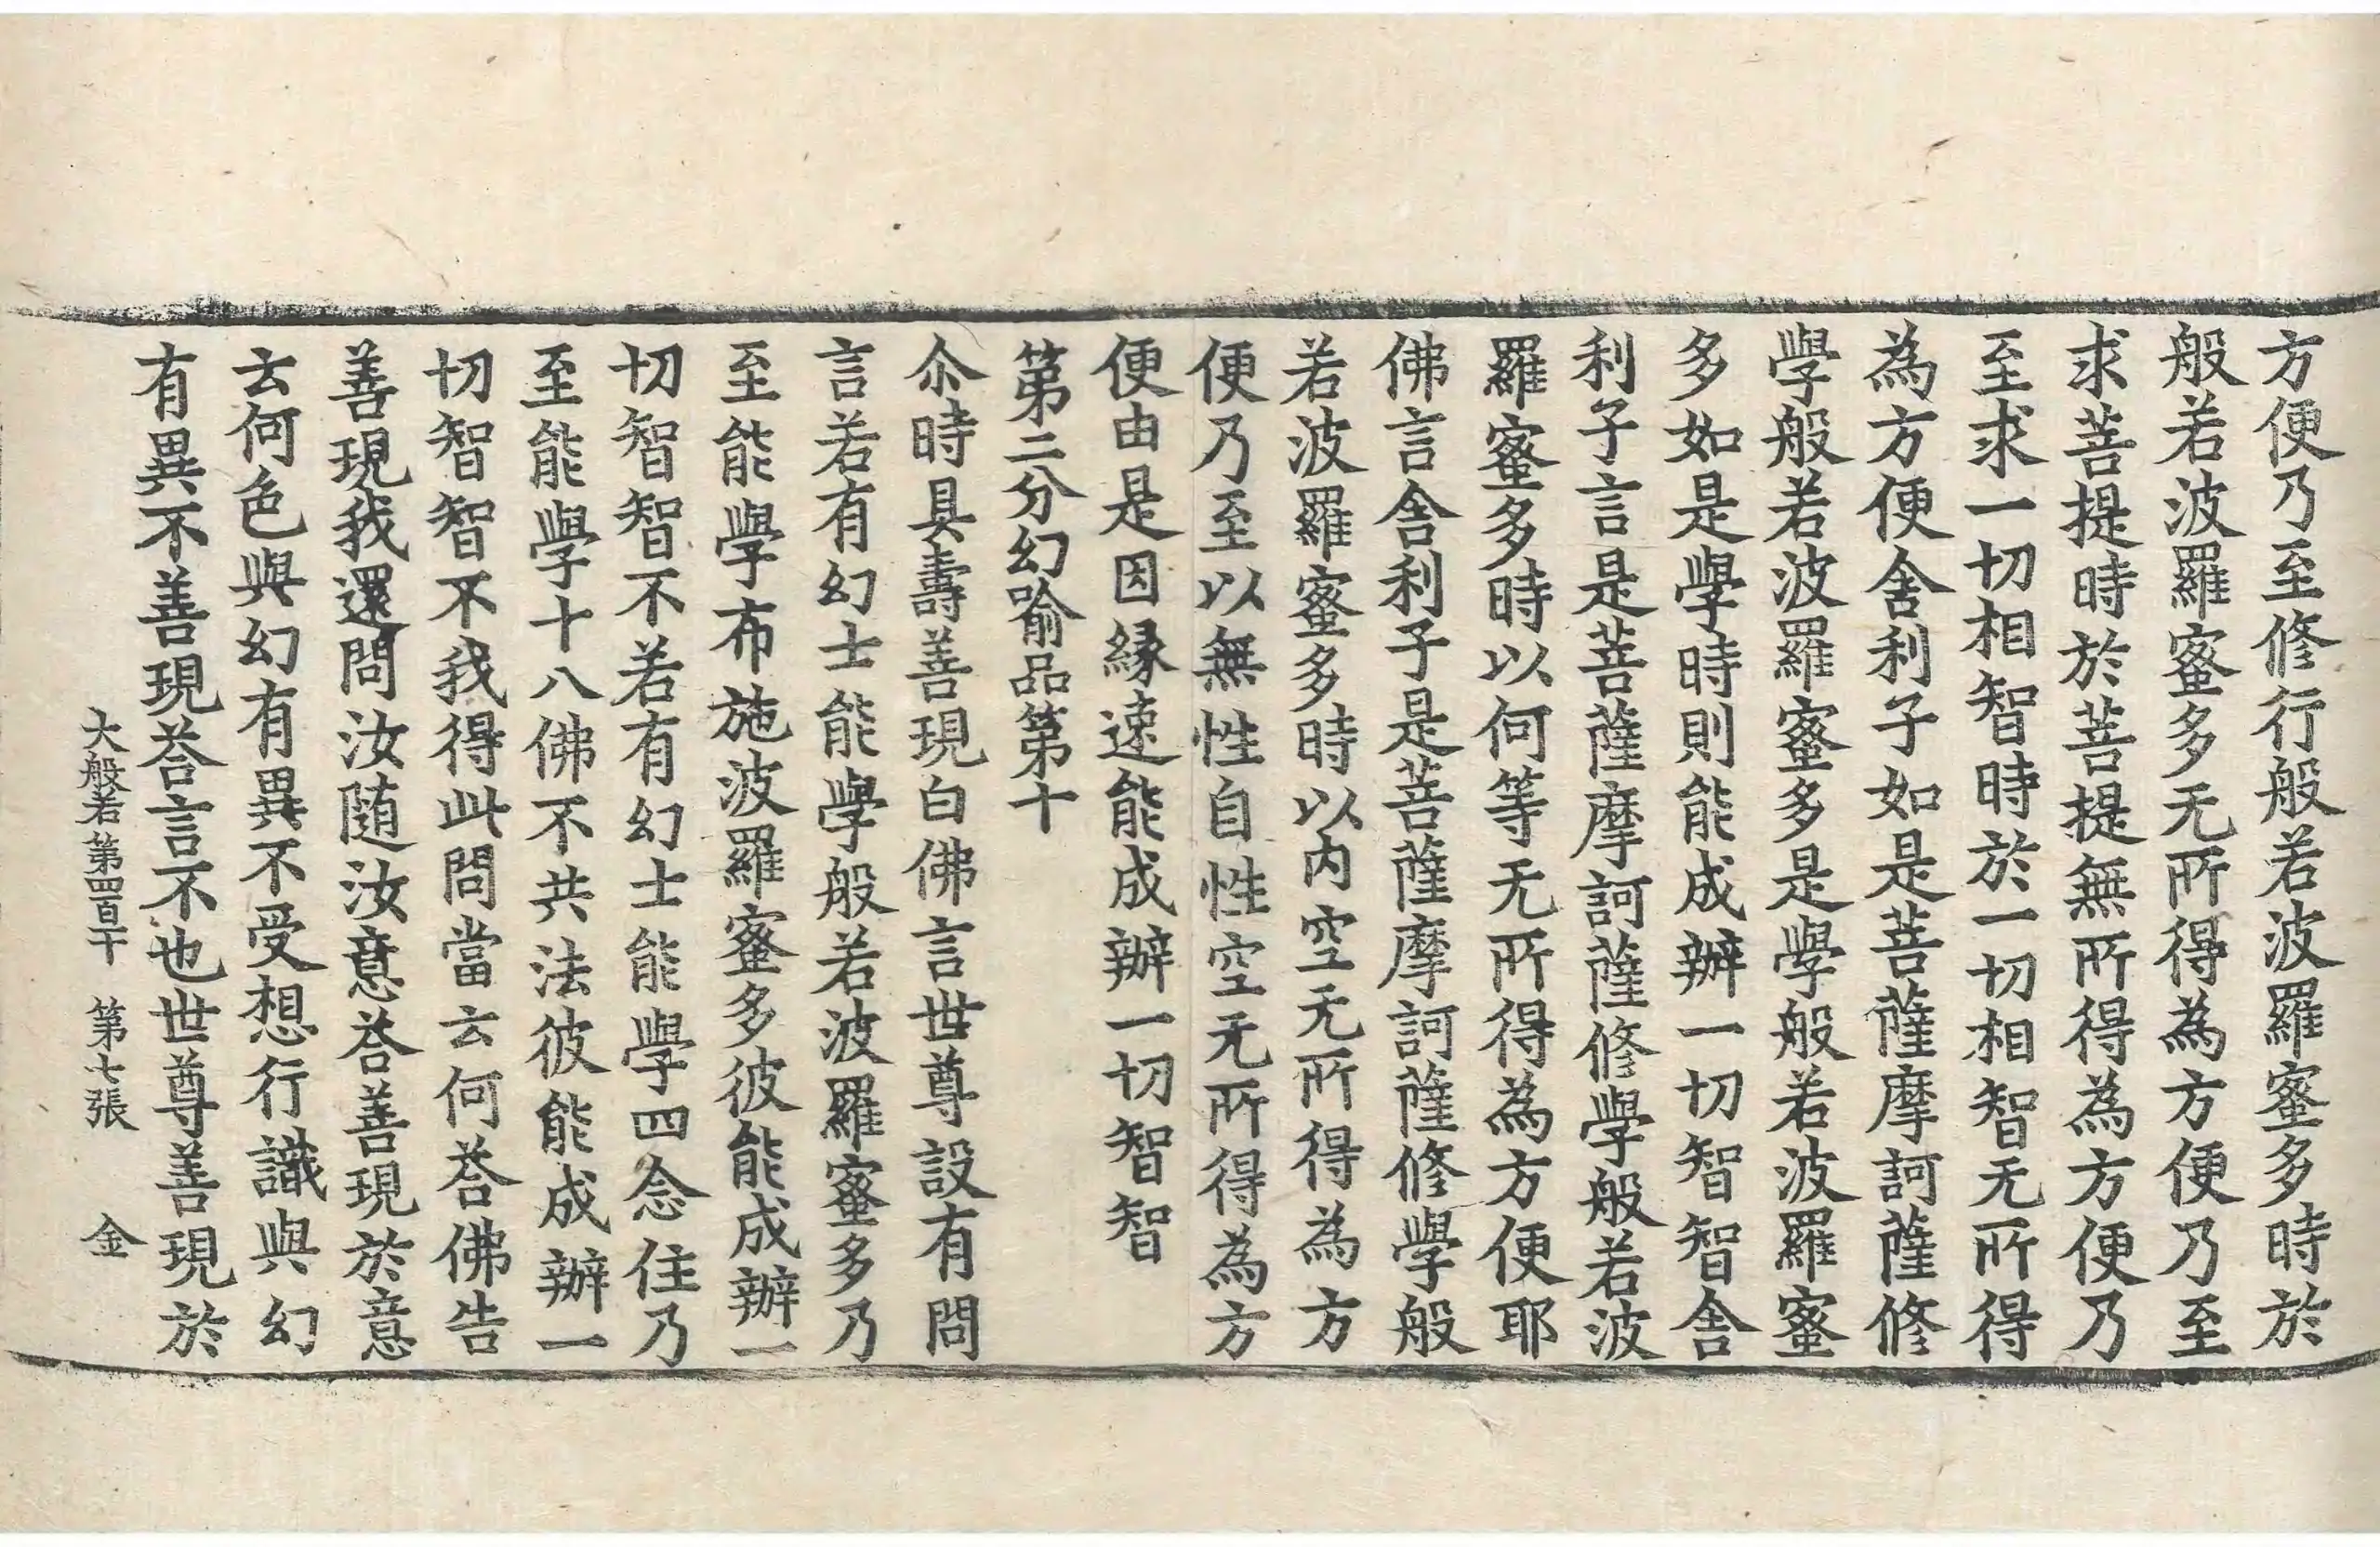 方便乃至修行般若波羅蜜多時於
般若波羅蜜多无所得為方便乃至
求菩提時於菩提無所得為方便乃
至求一切相智時於一切相智无所得
為方便舍利子如是菩薩摩訶薩修
學般若波羅蜜多是學般若波羅蜜
多如是學時則能成辦一切智智舍
利子言是菩薩摩訶薩修學般若波
羅蜜多時以何等无所得為方便耶
佛言舍利子是菩薩摩訶薩修學般
若波羅蜜多時以内空无所得為方
便乃至以無性自性空无所得為方
便由是因緣速能成辦一切智智
第二分幻喻品第十
尒時具壽善現白佛言世尊設有問
言若有幻士能學般若波羅蜜多乃
至能學布施波羅蜜多彼能成辦一
切智智不若有幻士能學四念住乃
至能學十八佛不共法彼能成辦一
切智智不我得此問當云何荅佛告
善現我還問汝随汝意荅善現於意
云何色與幻有異不受想行識與幻
有異不善現荅言不也世尊善現於
大般若第四百十 第七張 金